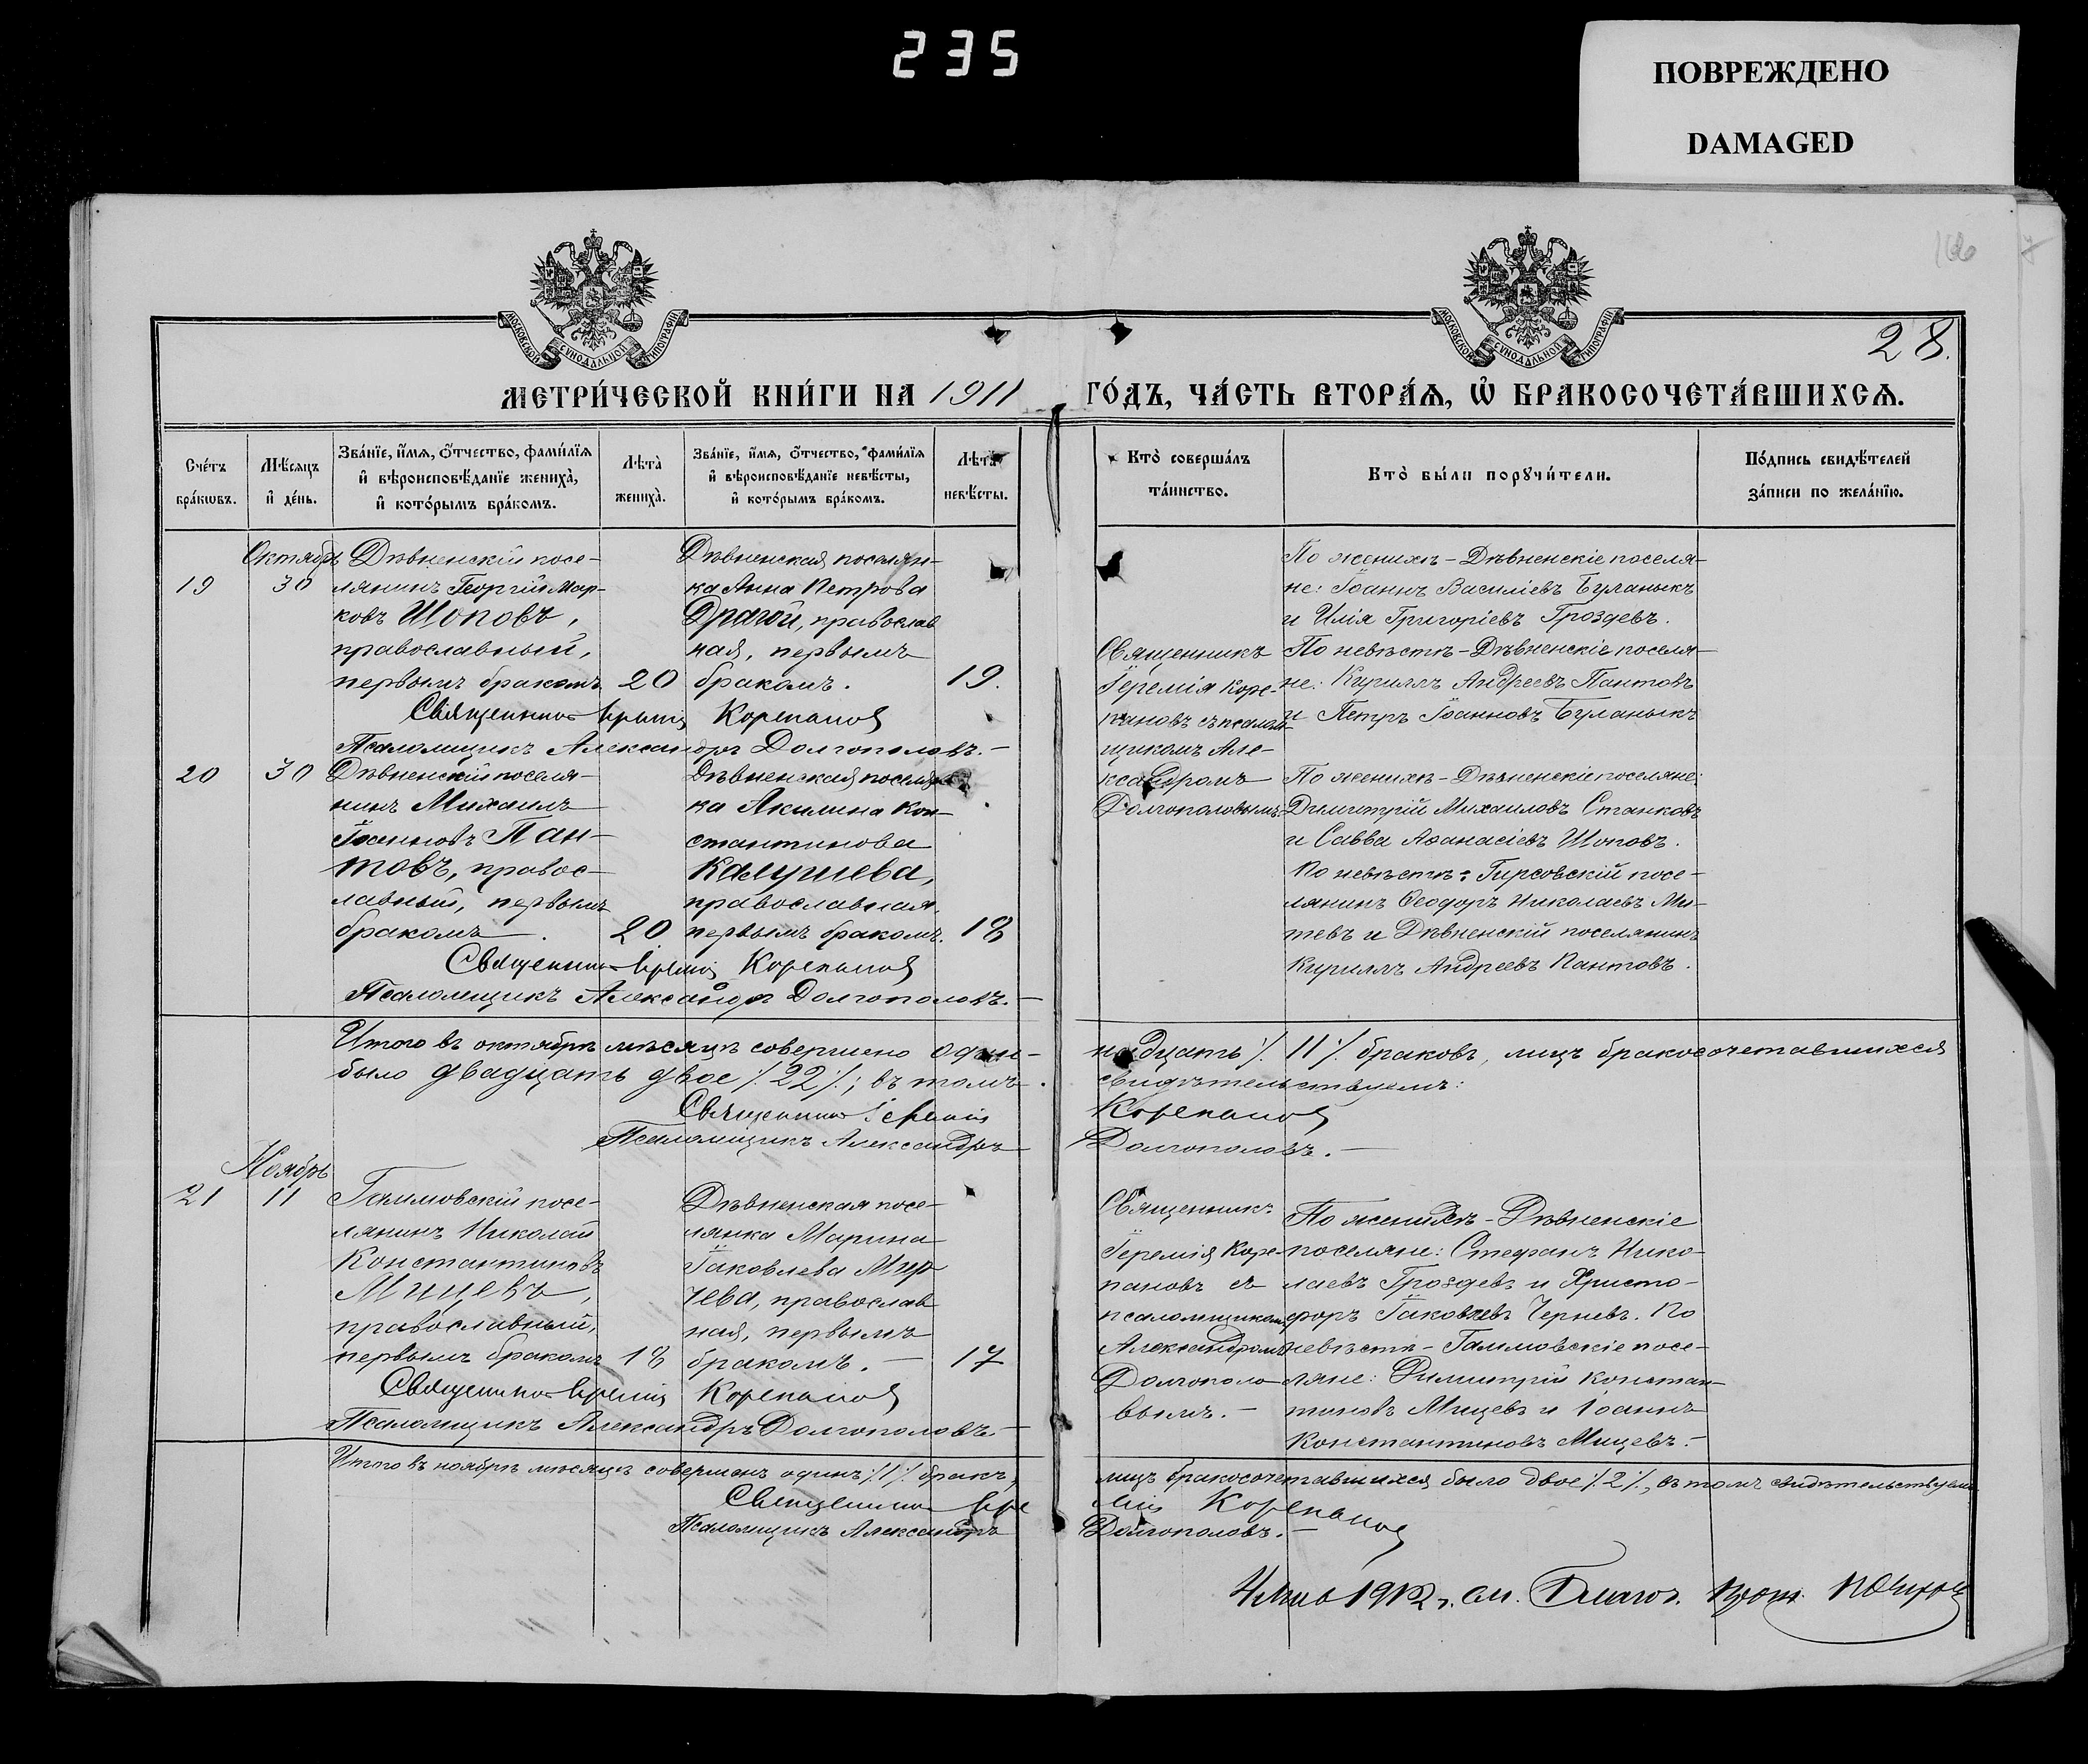 235
ПОВРЕЖДЕНО
DAMAGED
28.
МОСКОВСКОЙ СУНОДАЛЬНОЙ ТИПОГРАФІИ
МОСКОВСКОЙ СУНОДАЛЬНОЙ ТИПОГРАФІИ
МЕТРИ́ЧЕСКОЙ КНИ́ГИ НА 1911 ГО́ДЪ, ЧА́СТЬ ВТОРА́Ѧ, Ѡ҆ БРАКОСОЧЕТА́ВШИХСѦ.
Сче́тъ
бра́кѡвъ.
Мѣ́сѧцъ
и҆ де́нь.
Зва́нїе, и҆́мѧ, ѻ҆́тчество, фами́лїѧ
и҆ вѣроисповѣ́данїе жениха̀,
и҆ кото́рымъ бра́комъ.
Лѣ́та̀
жениха̀.
Зва́нїе, и҆́мѧ, ѻ҆́тчество, фами́лїѧ
и҆ вѣроисповѣ́данїе невѣ́сты,
и҆ кото́рымъ бра́комъ.
Лѣ́та̀
невѣ́сты.
Кто̀ соверша́лъ
та́инство.
Кто̀ бы́ли порꙋчи́тели.
По́дпись свидѣ́телей
за́писи по жела́нїю.
Октябрь
19
30
Дѣвненскій посе-
лянинъ Георгій Мар-
ковъ Шоповъ,
православный,
первымъ бракомъ
20
Дѣвненская поселян-
ка Анна Петрова
Драгой, православ
ная, первымъ
бракомъ.
19.
Священникъ
Іеремія Коре-
пановъ съ псалом-
щикомъ Але-
ксандромъ
Долгополовымъ.
По женихѣ - Дѣвненскіе поселя-
не: Іоаннъ Василіевъ Буланыкъ
и Илія Григоріевъ Гроздевъ.
По невѣстѣ - Дѣвненскіе поселя-
не: Кириллъ Андреевъ Пантовъ
и Петръ Іоанновъ Буланыкъ
Священникъ Іеремія Корепановъ
Псаломщикъ Александръ Долгополовъ. -
20
30
Дѣвненскій поселя-
нинъ Михаилъ
Іоанновъ Пан-
товъ, правос-
лавный, первымъ
бракомъ.
20
Дѣвненская поселян-
ка Акилина Кон-
стантинова
Калушева,
православная,
первымъ бракомъ.
18
По женихѣ - Дѣвненскіе поселяне:
Димитрій Михаиловъ Станковъ
и Савва Аѳанасіевъ Шоповъ.
По невѣстѣ: Гирсовскій посе-
лянинъ Ѳеодоръ Николаевъ Ми-
тевъ и Дѣвненскій поселянинъ
Кириллъ Андреевъ Пантовъ.
Священникъ Іеремія Корепановъ
Псаломщикъ Александръ Долгополовъ. -
Итого въ октябрѣ мѣсяцѣ совершено один-надцать ⁒ 11 ⁒ браковъ, лицъ бракосочетавшихся
было двадцать двое ⁒ 22 ⁒; въ томъ свидѣтельствуемъ:
Священникъ Іеремія Корепановъ
Псаломщикъ Александръ Долгополовъ. -
Ноябрь
21
11
Таимовскій посе-
лянинъ Николай
Константиновъ
Мицевъ,
православный,
первымъ бракомъ
18
Дѣвненская посе-
лянка Марина
Іаковлева Мир
чева, православ
ная, первымъ
бракомъ. -
17
Священникъ
Іеремія Коре-
пановъ съ
псаломщикомъ
Александромъ
Долгополо-
вымъ. -
По женихѣ - Дѣвненскіе
поселяне: Стефанъ Нико-
лаевъ Гроздевъ и Христо-
форъ Іаковлевъ Черневъ. По
невѣстѣ - Таимовскіе посе-
ляне: Димитрій Констан-
тиновъ Мицевъ и Іоаннъ
Константиновъ Мицевъ. -
Священникъ Іеремія Корепановъ
Псаломщикъ Александръ Долгополовъ. -
Итого въ ноябрѣ мѣсяцѣ совершенъ одинъ ⁒ 1 ⁒ бракъ, лицъ бракосочетавшихся было двое ⁒ 2 ⁒, въ томъ свидѣтельствуемъ
Священникъ Іеремія Корепановъ
Псаломщикъ Александръ Долгополовъ. -
1912 г. Благоч. Прот.